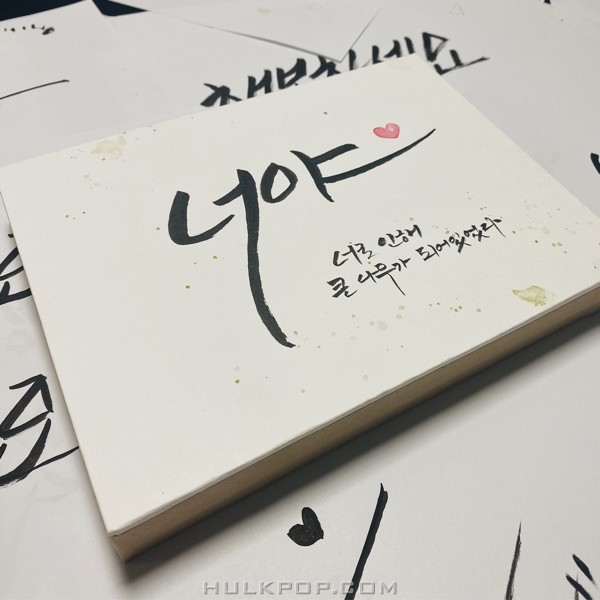 행복하세요
너야
너로 인해
큰 나무가 되어있었다
HULKPOP.COM